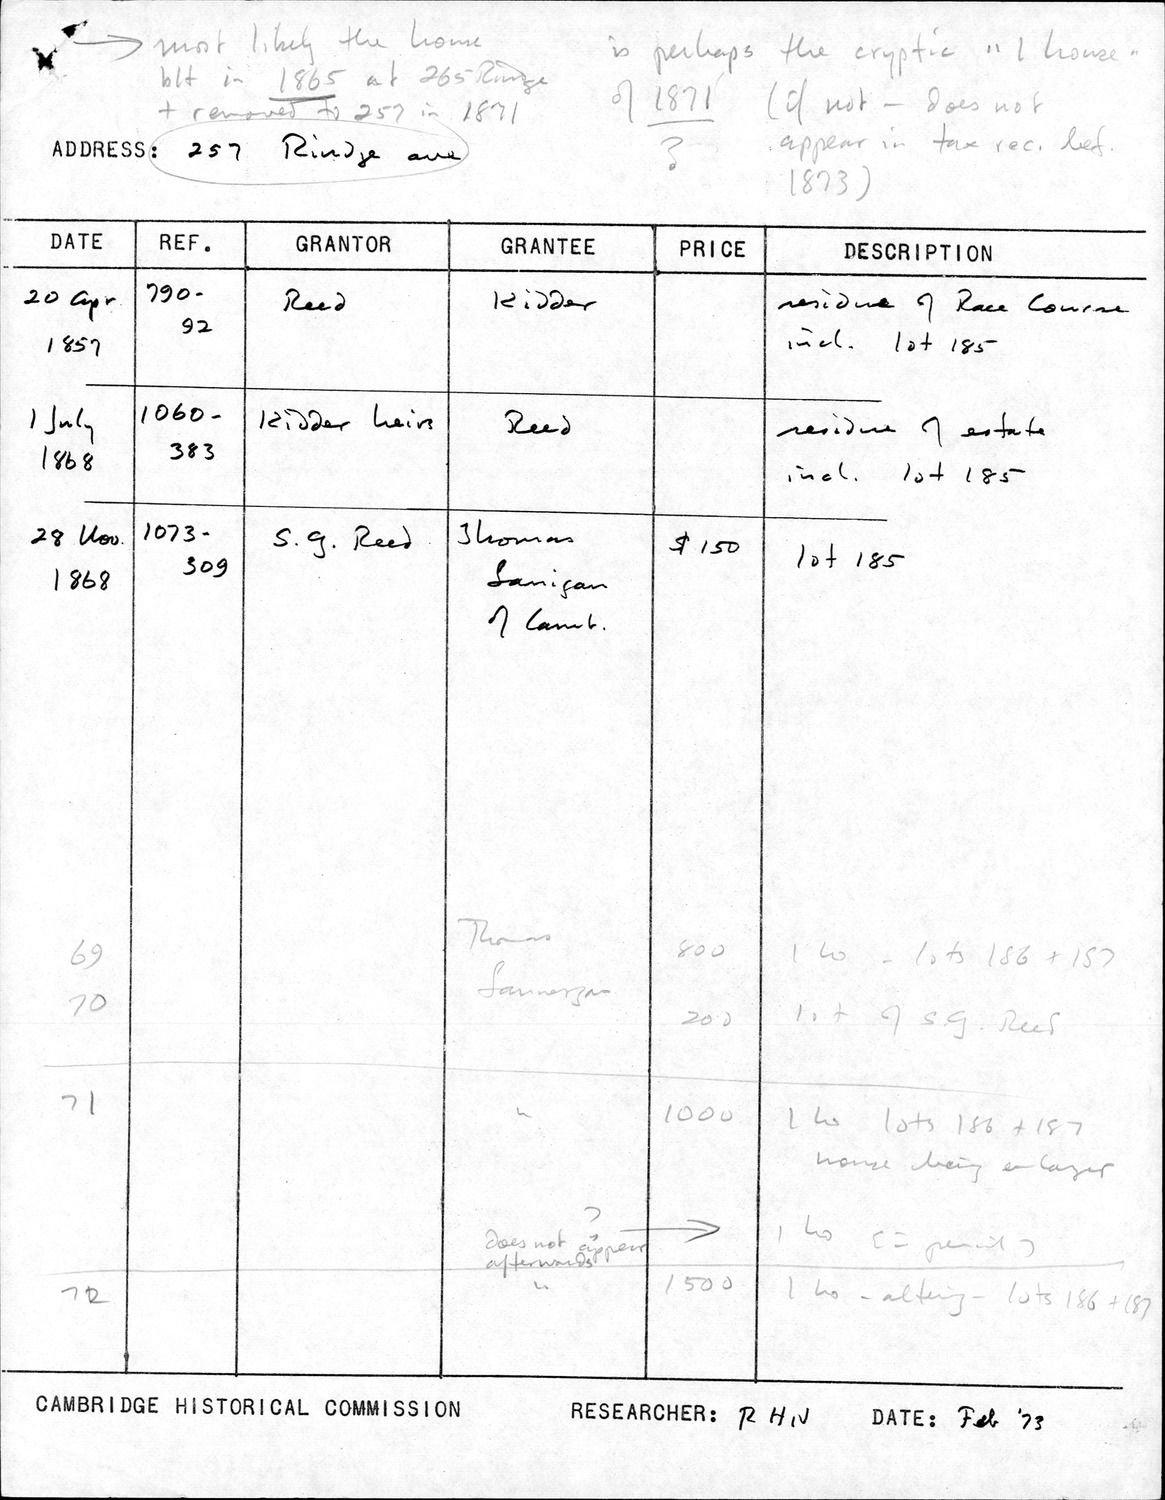 → most likely the house
blt in 1865 at 265 Rindge
+ removed to 257 in 1871
is perhaps the cryptic "1 house"
of 1871 (if not – does not
? appear in tax rec. bef.
1873)
ADDRESS: 257 Rindge ave
DATE REF. GRANTOR GRANTEE PRICE DESCRIPTION
20 Apr. 790- Reed Kidder residue of Race Course
1857 92 incl. lot 185
1 July 1060- Kidder heirs Reed residue of estate
1868 383 incl. lot 185
28 Nov. 1073- S.G. Reed Thomas $150 lot 185
1868 309 Lanigan
of Camb.
69 Thomas 800 1 ho – lots 186 + 187
70 200 lot of S.G. Reed
71 " 1000 1 ho lots 186 + 187
house being
? → 1 ho
does not appear
afterwards
72 " 1500 1 ho – altering – lots 186 + 187
CAMBRIDGE HISTORICAL COMMISSION RESEARCHER: DATE: Feb '73